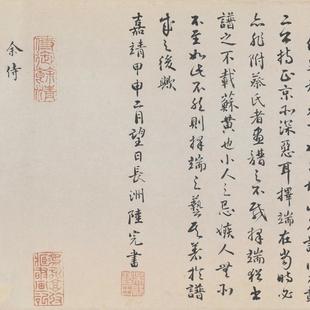 二公持正京所深惡耳擇端在當時必
亦非附蔡氏者畫譜之不載擇端猶書
譜之不載蘇黄也小人之忌嫉人無所
不至如此不然則擇端之藝其著於譜
成之後歟
嘉靖甲申二月望日長洲陸完書
余侍